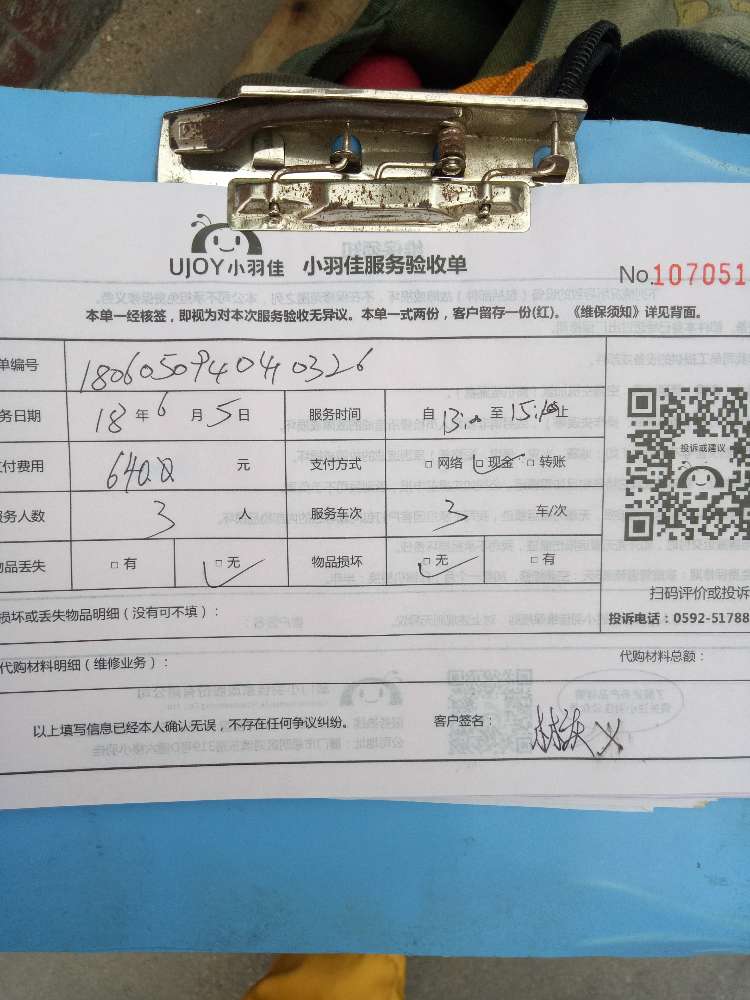 UJOY小羽佳 小羽佳服务验收单
No.107051
本单一经核签，即视为对本次服务验收无异议。本单一式两份，客户留存一份(红)。《维保须知》详见背面。
单编号 180605094040326
务日期 18年6月5日 服务时间 自13:00至15:10止
付费用 6400 元 支付方式 □网络 □现金 □转账
投诉或建议
服务人数 3 人 服务车次 3 车/次
物品丢失 □有 □无 物品损坏 □无 □有
扫码评价或投诉
损坏或丢失物品明细（没有可不填）：
投诉电话：0592-51788
代购材料明细（维修业务）： 代购材料总额：
以上填写信息已经本人确认无误，不存在任何争议纠纷。 客户签名：